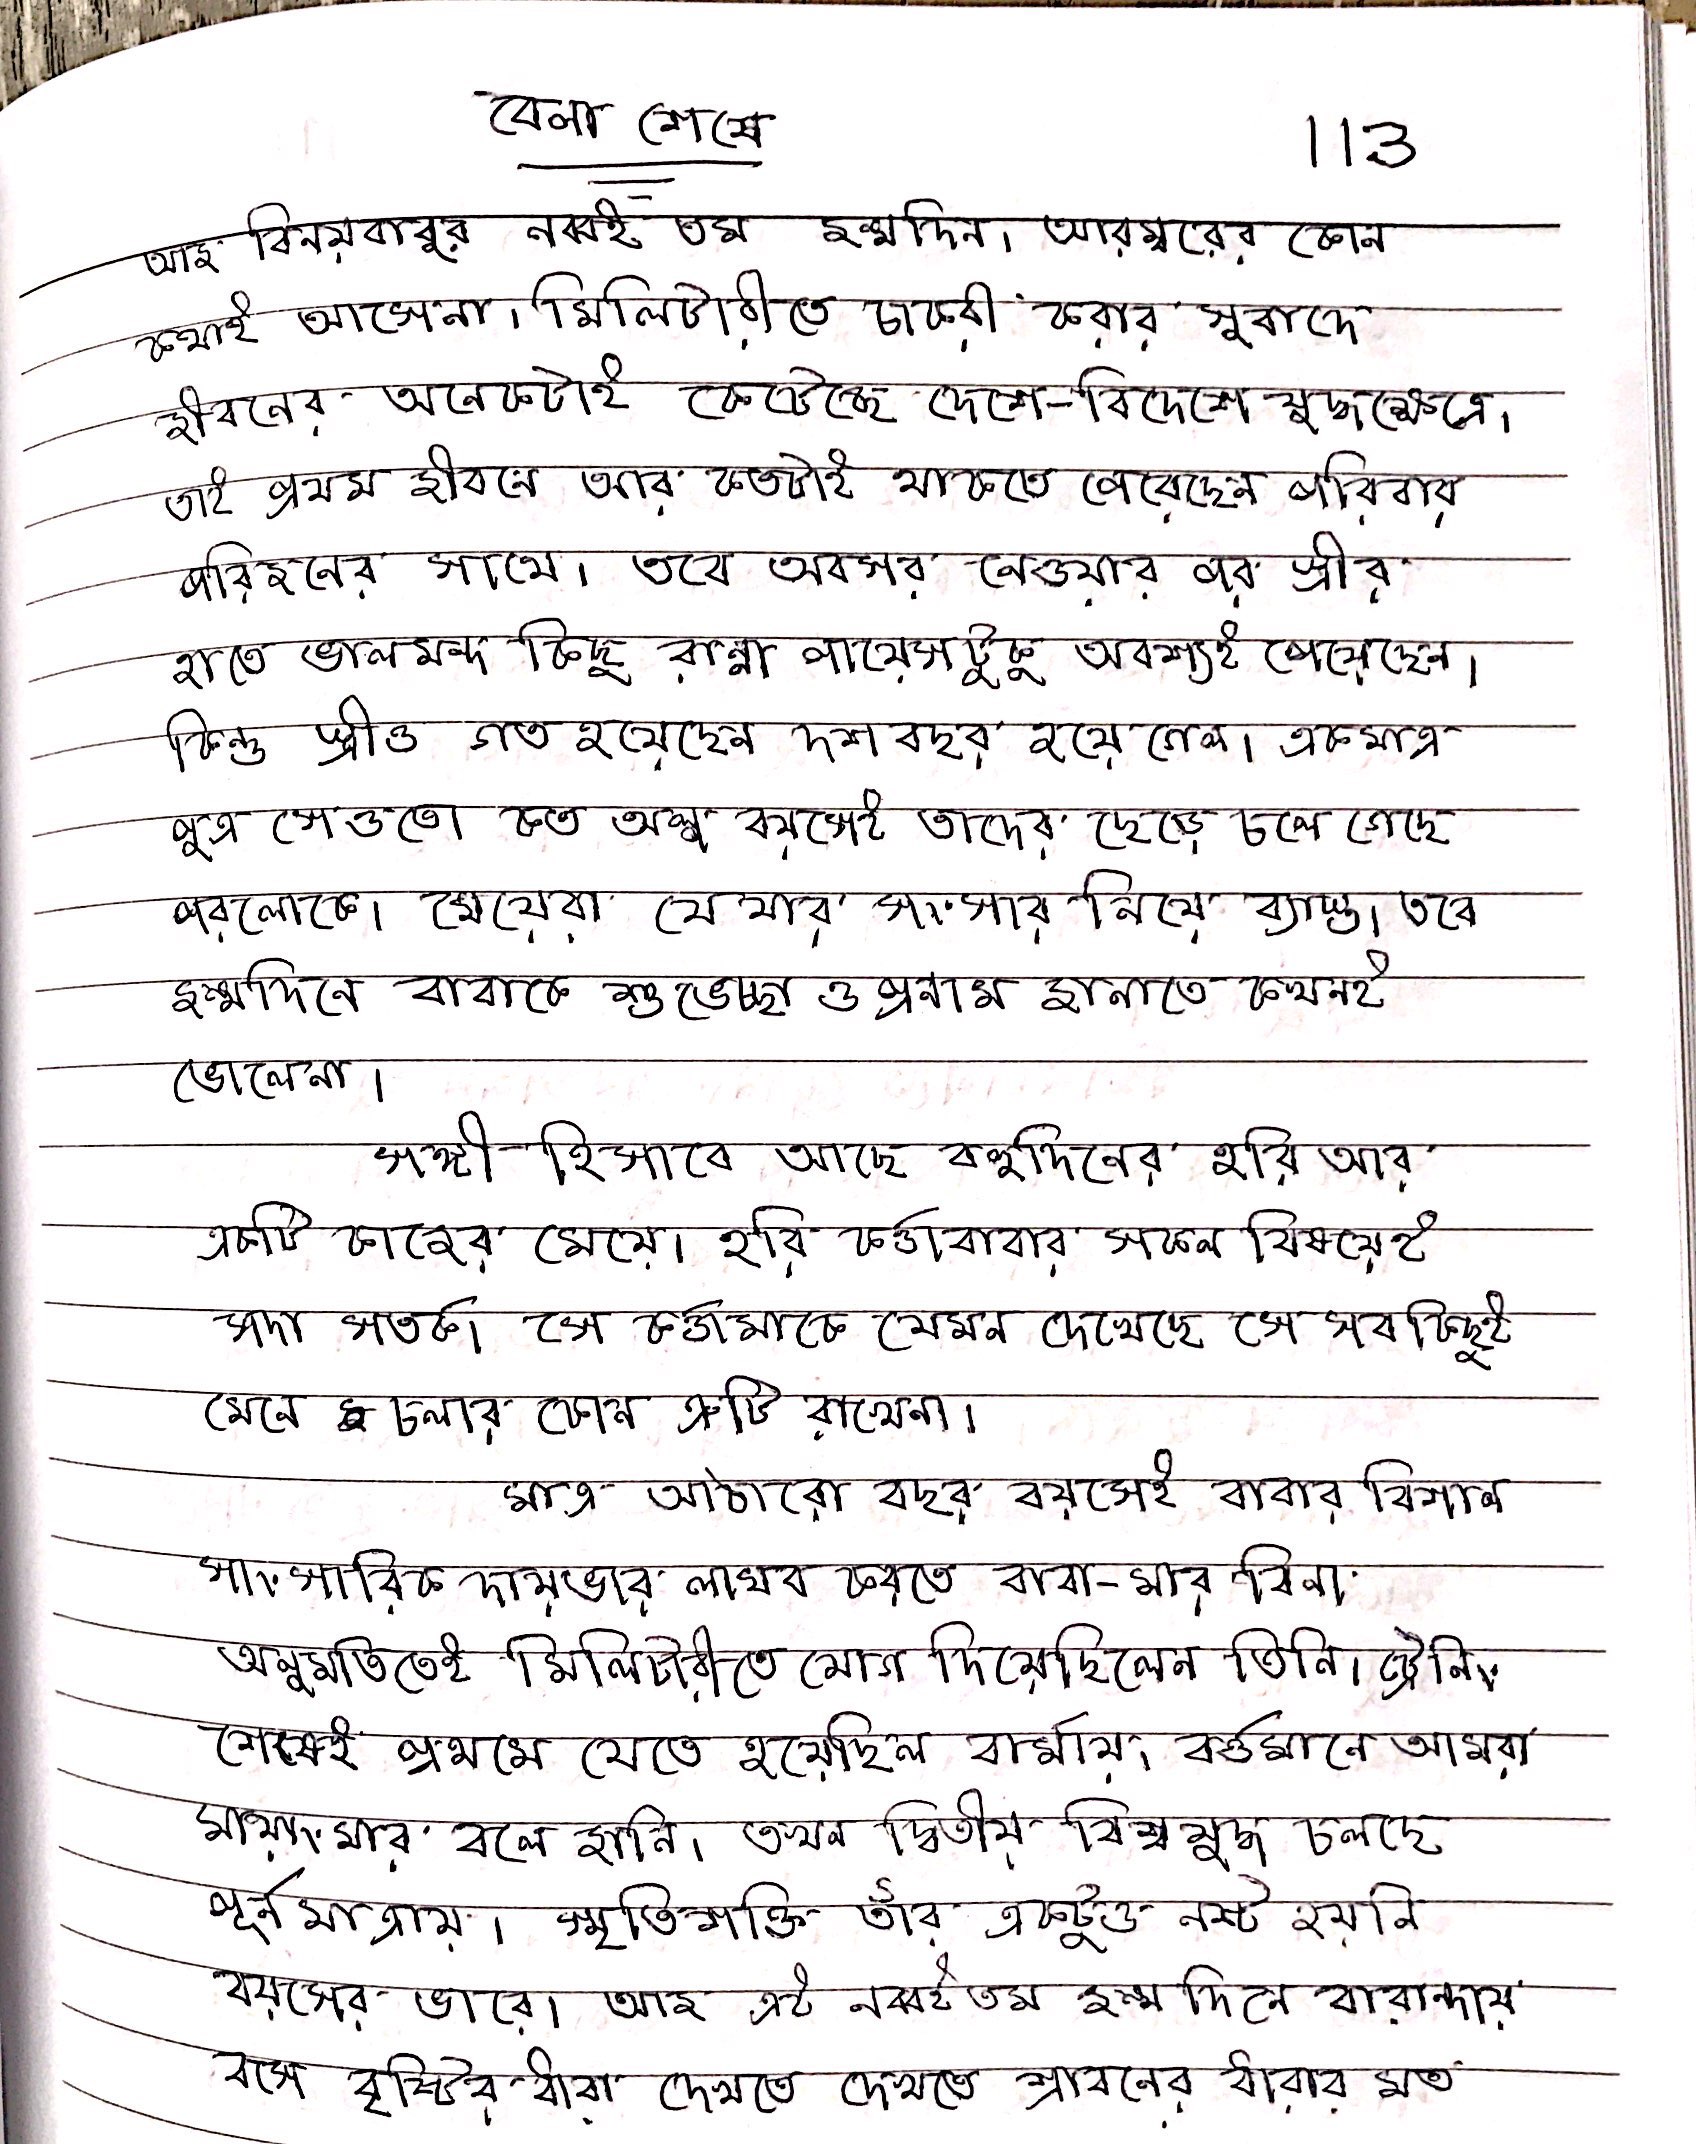 বেলা শেষে
113
আজ বিনয়বাবুর নব্বই তম জন্মদিন। আরম্বরের কোন
কথাই আসেনা। মিলিটারীতে চাকরী করার সুবাদে
জীবনের অনেকটাই কেটেছে দেশে-বিদেশে যুদ্ধক্ষেত্রে।
তাই প্রথম জীবনে আর কতটাই থাকতে পেরেছেন পরিবার
পরিজনের সাথে। তবে অবসর নেওয়ার পর স্ত্রীর
হাতে ভালমন্দ কিছু রান্না পায়েসটুকু অবশ্যই পেয়েছেন।
কিন্তু স্ত্রীও গত হয়েছেন দশ বছর হয়ে গেল। একমাত্র
পুত্র সেওতো কত অল্প বয়সেই তাদের ছেড়ে চলে গেছে
পরলোকে। মেয়েরা যে যার সংসার নিয়ে ব্যাস্ত। তবে
জন্মদিনে বাবাকে শুভেচ্ছা ও প্রনাম জানাতে কখনই
ভোলেনা।
সঙ্গী হিসাবে আছে বহুদিনের হরি আর
একটি কাজের মেয়ে। হরি কর্ত্তাবাবার সকল বিষয়েই
সদা সতর্ক। সে কর্ত্তামাকে যেমন দেখেছে সে সব কিছুই
মেনে চলার কোন ত্রুটি রাখেনা।
মাত্র আঠারো বছর বয়সেই বাবার বিশাল
সাংসারিক দায়ভার লাঘব করতে বাবা-মার বিনা
অনুমতিতেই মিলিটারীতে যোগ দিয়েছিলেন তিনি। ট্রেনিং
শেষেই প্রথমে যেতে হয়েছিল বার্মায়। বর্ত্তমানে আমরা
মায়ংমার বলে জানি। তখন দ্বিতীয় বিশ্বযুদ্ধ চলছে
পূর্ন মাত্রায়। স্মৃতিশক্তি তাঁর একটুও নষ্ট হয়নি
বয়সের ভারে। আজ এই নব্বইতম জন্ম দিনে বারান্দায়
বসে বৃষ্টির ধারা দেখতে দেখতে শ্রাবনের ধারার মত